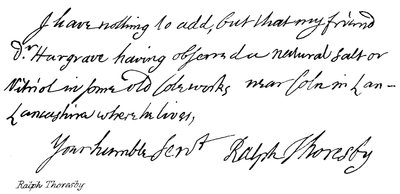 I have nothing to add, but that my friend
Dr. Hargrave having observed a natural salt or
Vitriol in some old Coleworks near Coln in Lan-
Lancashire where he lives,
Your humble Servt Ralph Thoresby
Ralph Thoresby